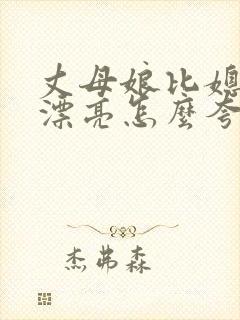 丈母娘比媳
漂亮怎麼夸
杰弗森